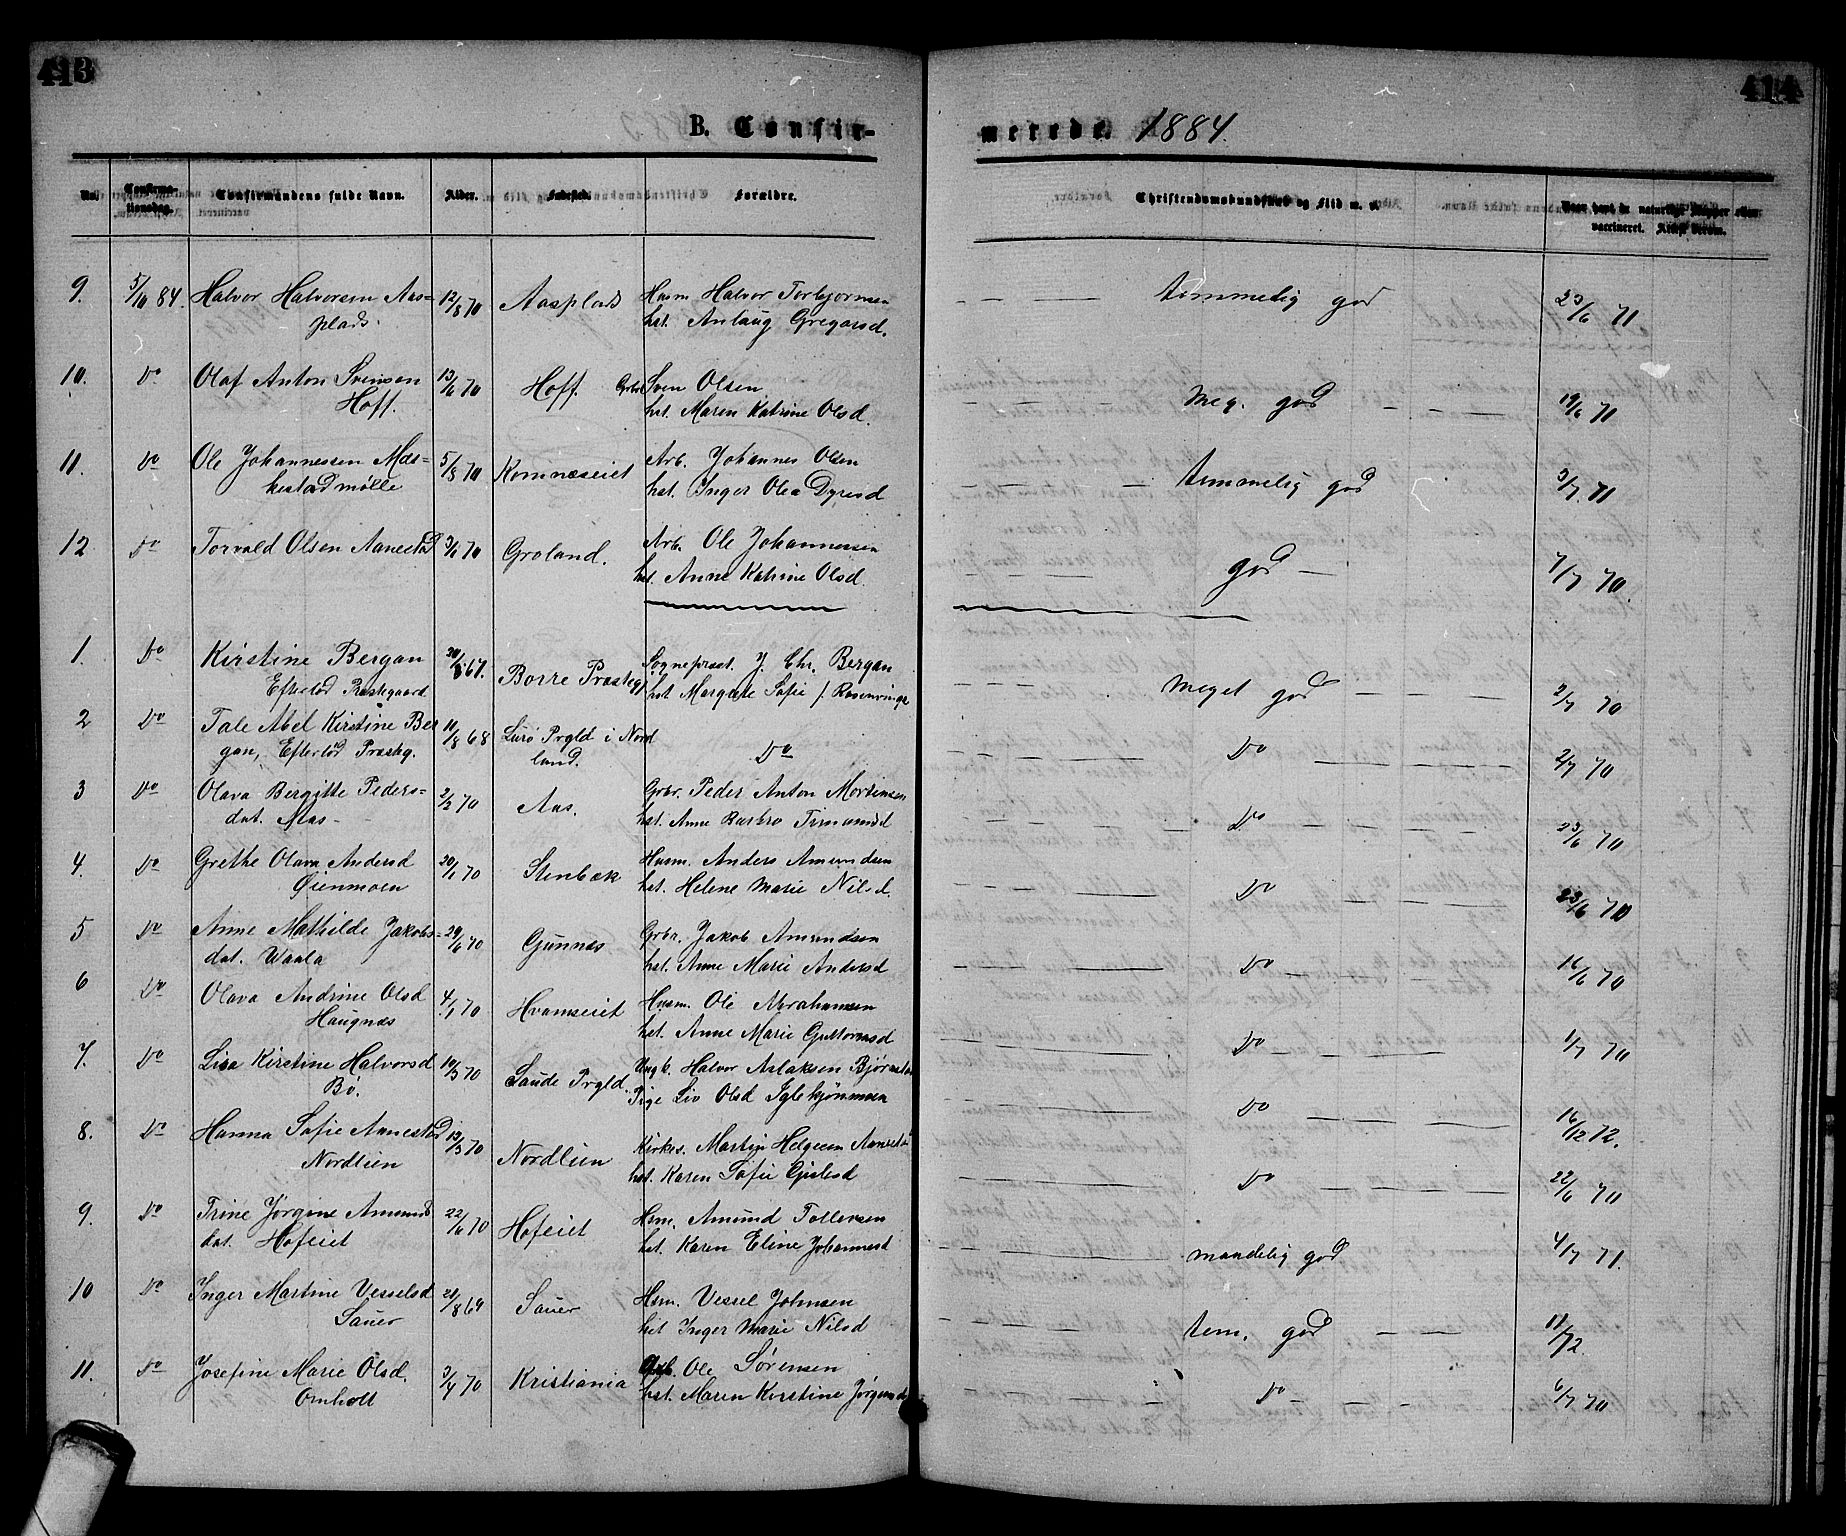 413
414
B. Confir-
merede. 1884.
No.
Confirma-
tionsdag.
Confirmandens fulde Navn.
Alder.
Fødested.
Forældre.
Christendomskundskab og Flid m. v.
Naar havt de naturlige Kopper eller
vaccineret.
9. 5/10 84. Halvor Halvorsen Aas- 12/8 70 Aasplads Husm Halvor Torbjørnsen temmelig god 23/6 71
plads. hst. Anlaug Gregarsd.
10. Do Olaf Anton Svensen 13/6 70 Hoff. Grbr Sven Olsen meg. god 19/6 71
Hoff. hst. Maren Katrine Olsd.
11. Do Ole Johannessen Mæs- 5/8 70 Komnæseiet Arb. Johannes Olsen temmelig god 3/7 71
kestadmølle hst. Inger Olea Dyresd
12. Do Torvald Olsen Aanestad 3/6 70 Groland. Arb. Ole Johannessen god 7/7 70.
hst. Anne Katrine Olsd.
1. Do Kirstine Bergan Borre Præsteg. Sogneprest. J. Chr. Bergan meget god 2/7 70
Efteløt Præstegaard. hst Margrete Sofie f. Rosenvinge
2 Do Tale Abel Kirstine Ber 11/8 68 Lurø Prgld i Nord Do Do 2/7 70
gan, Efteløt Præsteg. land.
3 Do Olava Bergitte Peders- 2/2 70 Aas. Grbr. Peder Anton Mortensen Do 23/6 70
dat. Aas- hst. Anne Barbro
4. Do Grethe Olava Andersd 20/1 70 Stenbæk Husm. Anders Amundsen Do 23/6 70
Øienmoen hst. Helene Marie Nilsd.
5 Do Anne Mathilde Jakobs- 29/6 70 Gunnæs Grbr. Jakob Amundsen Do 16/6 70
dat. Waala hst. Anne Marie Andersd
6 Do Olava Andrine Olsd 4/1 70 Hvamseiet Husm. Ole Abrahamsen Do 1/7 70
Haugnæs hst. Anne Marie Guttormsd
7. Do Lisa Kirstine Halvorsd 10/3 70 Saude Prgld. Ungk. Halvor Aslaksen Do 16/12 72.
Bø. Pige Liv Olsd
8. Do Hanna Sofie Aanestad 13/3 70 Nordlien Kirkes. Martin Helgesen Aanestad Do 22/6 70
Nordlien hst. Karen Sofie Gjislesd
9. Do Trine Jørgine Amunds 22/6 70 Hofeiet Hsm. Amund Tollefsen maadelig god 4/7 71.
dat. Hofeiet hst. Karen Eline Johannesd
10 Do Inger Martine Vesselsd 21/8 69 Sauer Hsm. Vessel Johnsen tem. god 11/72.
Sauer hst Inger Marie Nilsd
11. Do Josefine Marie Olsd. 3/4 70 Kristiania Arb. Ole Sørensen Do 6/7 70
Omholt hst. Maren Kirstine Jørgensd